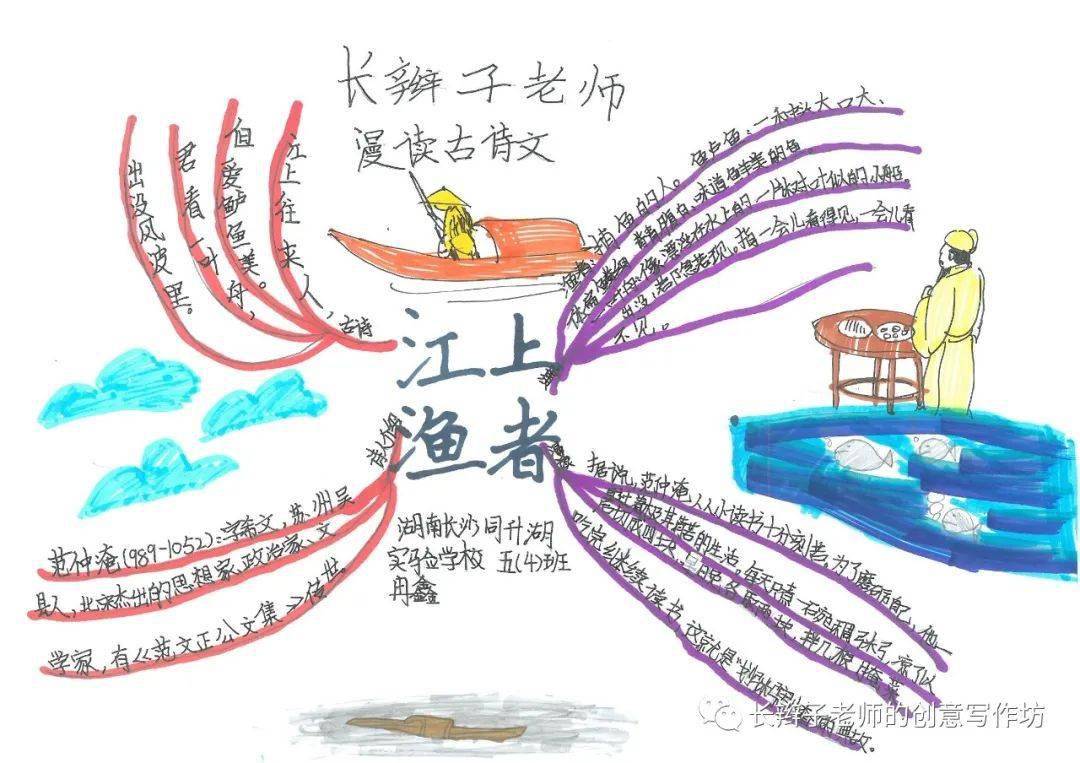 长辫子老师
漫读古诗文
江上往来人,
但爱鲈鱼美。
君看一叶舟,
出没风波里。
古诗
江上
渔者
渔者:捕鱼的人。鲈鱼:一种头大口大、
体扁鳞细、背青腹白、味道鲜美的鱼。
一叶舟:像漂浮在水上的一片树叶似的小船
出没,若隐若现。指一会儿看得见,一会儿看
不见。
诗人介绍
范仲淹(989-1052):字希文,苏州吴
县人,北宋杰出的思想家、政治家、文
学家,有《范文正公文集》传世。
湖南长沙同升湖
实验学校 五(4)班
冉鑫
据说,范仲淹从小读书十分刻苦,为了磨砺自己,他一
的生活,每天只煮一石宛稠
吃完继续读书,这就是
的典故。
长辫子老师的创意写作坊